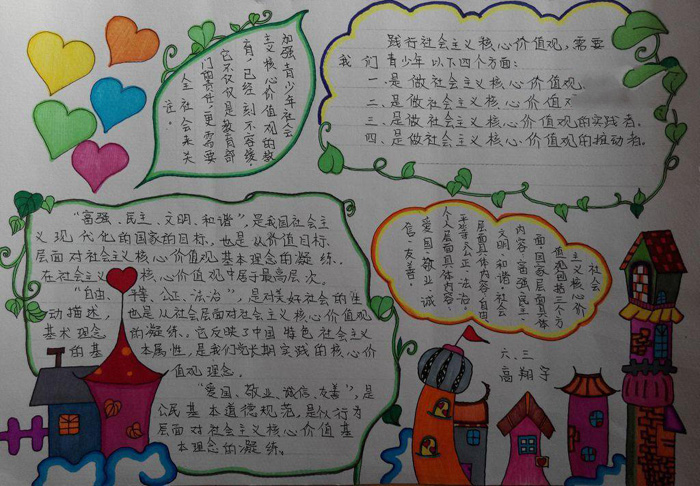 加强青少年社会
主义核心价值观的教
育,已经刻不容缓
它不仅仅是教育部
门的责任,更需要
全社会来关
注。
践行社会主义核心价值观,需要
我们青少年以下四个方面:
一是做社会主义核心价值观
二是做社会主义核心价值不
三、是做社会主义核心价值观的实践者。
四、是做社会主义核心价值观的推动者。
“富强、民主、文明、和谐”,是我国社会主
义现代化的国家的目标,也是从价值目标
层面对社会主义核心价值观基本理念的凝练.
在社会主义核心价值观中居于最高层次。
“自由、平等、公正、法治”,是对美好社会的生
动描述,也是从社会层面对社会主义核心价值观
基本理念的凝练。它反映了中国特色社会主义
的基本属性,是我们党长期实践的核心价
值观理念。
“爱国、敬业、诚信、友善”,是
公民基本道德规范,是从行为
层面对社会主义核心价值基
本理念的凝练。
社会
主义核心价
值观包括三个方
面,国家层面具体
内容:富强、民主、
文明、和谐、社会
层面具体内容:自由、
平等、公正、法治。
个人层面具体内容:
爱国、敬业、诚
信、友善
六.三
高翔宇